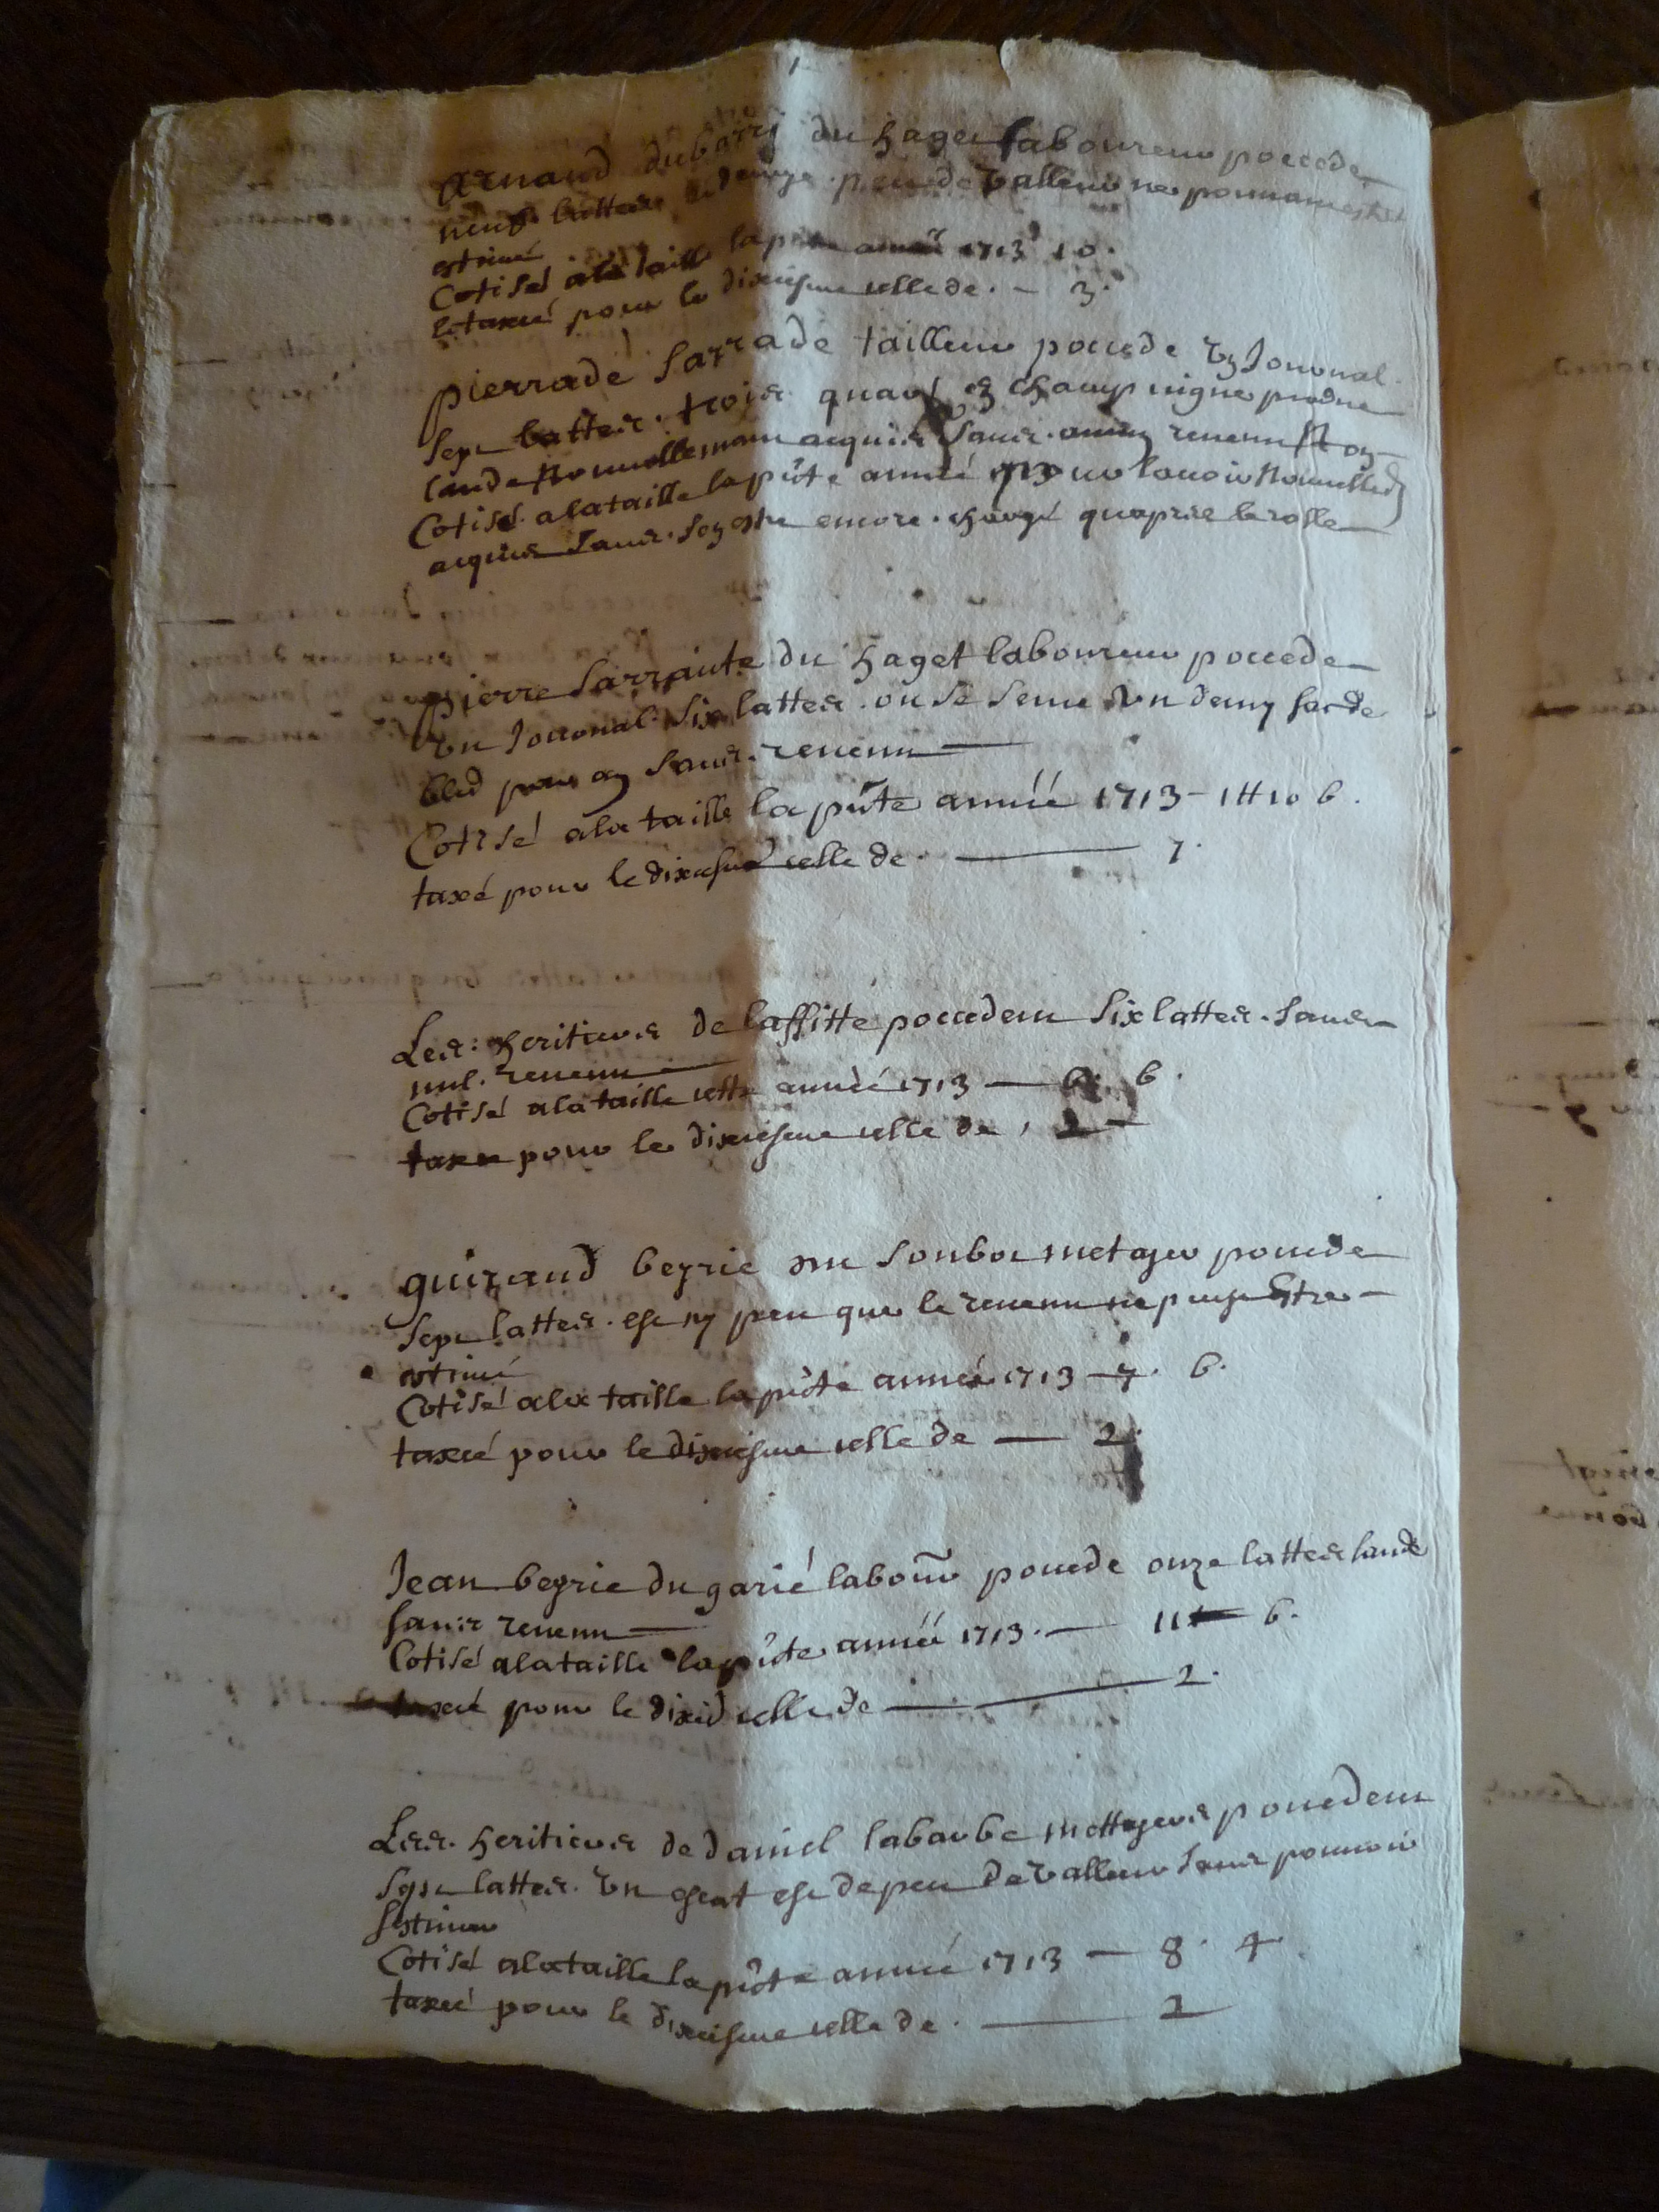 Arnand dubarri du haget laboureur poccede
neuf lattes et demye peu de valleur ne pouuant estre
estimé
Cotisé a la taille la pnte année 1713 10.
et taxcé pour le dixiesme celle de. — 3.
pierrade Sarrade tailleur poccede un Journal
Sept lattes. trois quars en champ vigne
lande nouuellemant acquis sans. aucun reuenu
Cotisé a la taille la pnte année 1713 pour lauoir nouuellemt
acquis sans. sen estre encore. chargé quapres le rolle
pierre Sarrainte du haget laboureur poccede
un Journal Six lattes. ou se seme un demy sac de
bled sans. reuenu
Cotisé a la taille la pnte année 1713 – 1 tt 10 6.
taxé pour le dixiesme celle de. — 7.
Les: heritiers de laffitte poccedent Six lattes. sans
nul. reuenu
Cotisé a la taille cette année 1713 — 6. 6.
taxce pour le dixiesme celle de, 2 –
guiraud beyrie metayer poccede
Sept lattes. est sy peu que le reuenu ne puist Estre –
estimé
Cotisé a la taille la pnte année 1713 — 7. 6.
taxcé pour le dixiesme celle de — 2.
Jean beyrie du garié labour poccede onze lattes lande
sans reuenu
Cotisé a la taille la pnte année 1713. — 11 — 6.
taxcé pour le dixie celle de — 2.
Les. heritiers de daniel labarbe mettayers poccedent
Sept lattes. un escat est de peu de valleur sans pouuoir
lestimer
Cotisé a la taille la pnte année 1713 — 8. 4.
taxcé pour le dixiesme celle de. — 2